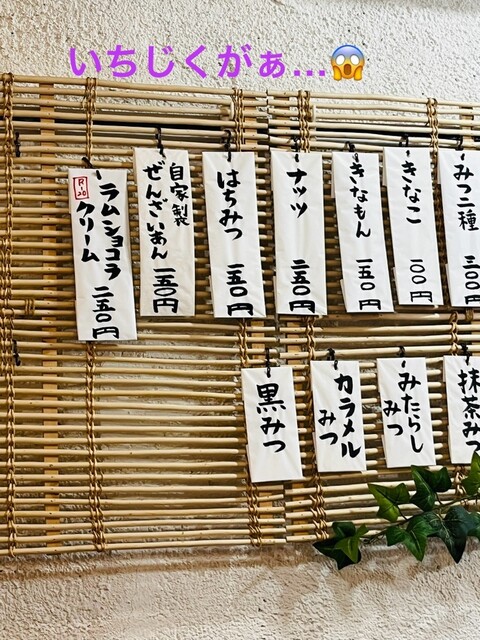 いちじくがぁ…😱
みつ二種 三〇〇円
きなこ 一〇〇円
きなもん 一五〇円
ナッツ 二五〇円
はちみつ 一五〇円
自家製
ぜんざいあん 一五〇円
ラムショコラ
クリーム 二五〇円
R-20
抹茶みつ
みたらし
みつ
カラメル
みつ
黒みつ